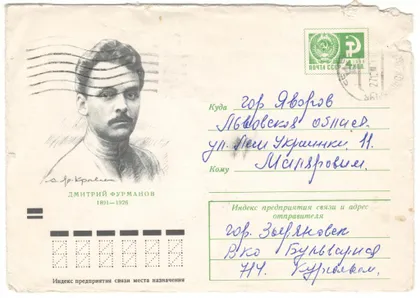 ПОЧТА СССР
Д. Фурманов
ДМИТРИЙ ФУРМАНОВ
1891—1926
Куда гор Яворов
Львовская област
ул. Леси Украинки 11
Кому
Индекс предприятия связи и адрес отправителя
гор. Зыряновск
ВКО Бульварная
Индекс предприятия связи места назначения